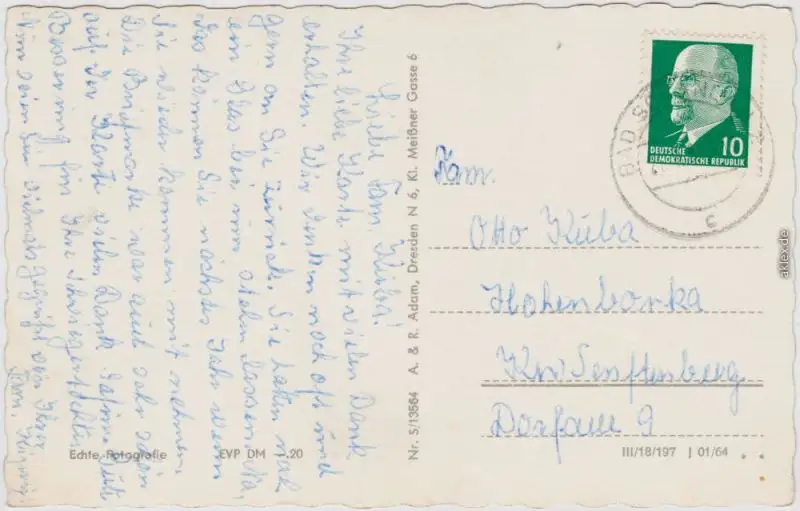 Liebe Fam. Kuba!
Ihre liebe Karte mit vielen Dank
erhalten. Wir denken noch oft und
gern an Sie zurück. Sie haben mal
ein Glas bei uns stehn lassen,
das können Sie nächstes Jahr wenn
Sie wieder kommen mit nehmen.
Die Briefmarke war auch sehr schön
auf der Karte vielen Dank. Gute
Besserung für Ihre Schwiegertochter.
Nun seien Sie vielmals gegrüßt von Ihrer
Fam.
Echte Fotografie
EVP DM -.20
Nr. 5/13564 A. & R. Adam, Dresden N 6, Kl. Meißner Gasse 6
10
DEUTSCHE
DEMOKRATISCHE REPUBLIK
BAD
c
Fam.
Otto Kuba
Hohenbocka
Kr. Senftenberg
Dorfaue 9
III/18/197 J 01/64
aklex.de